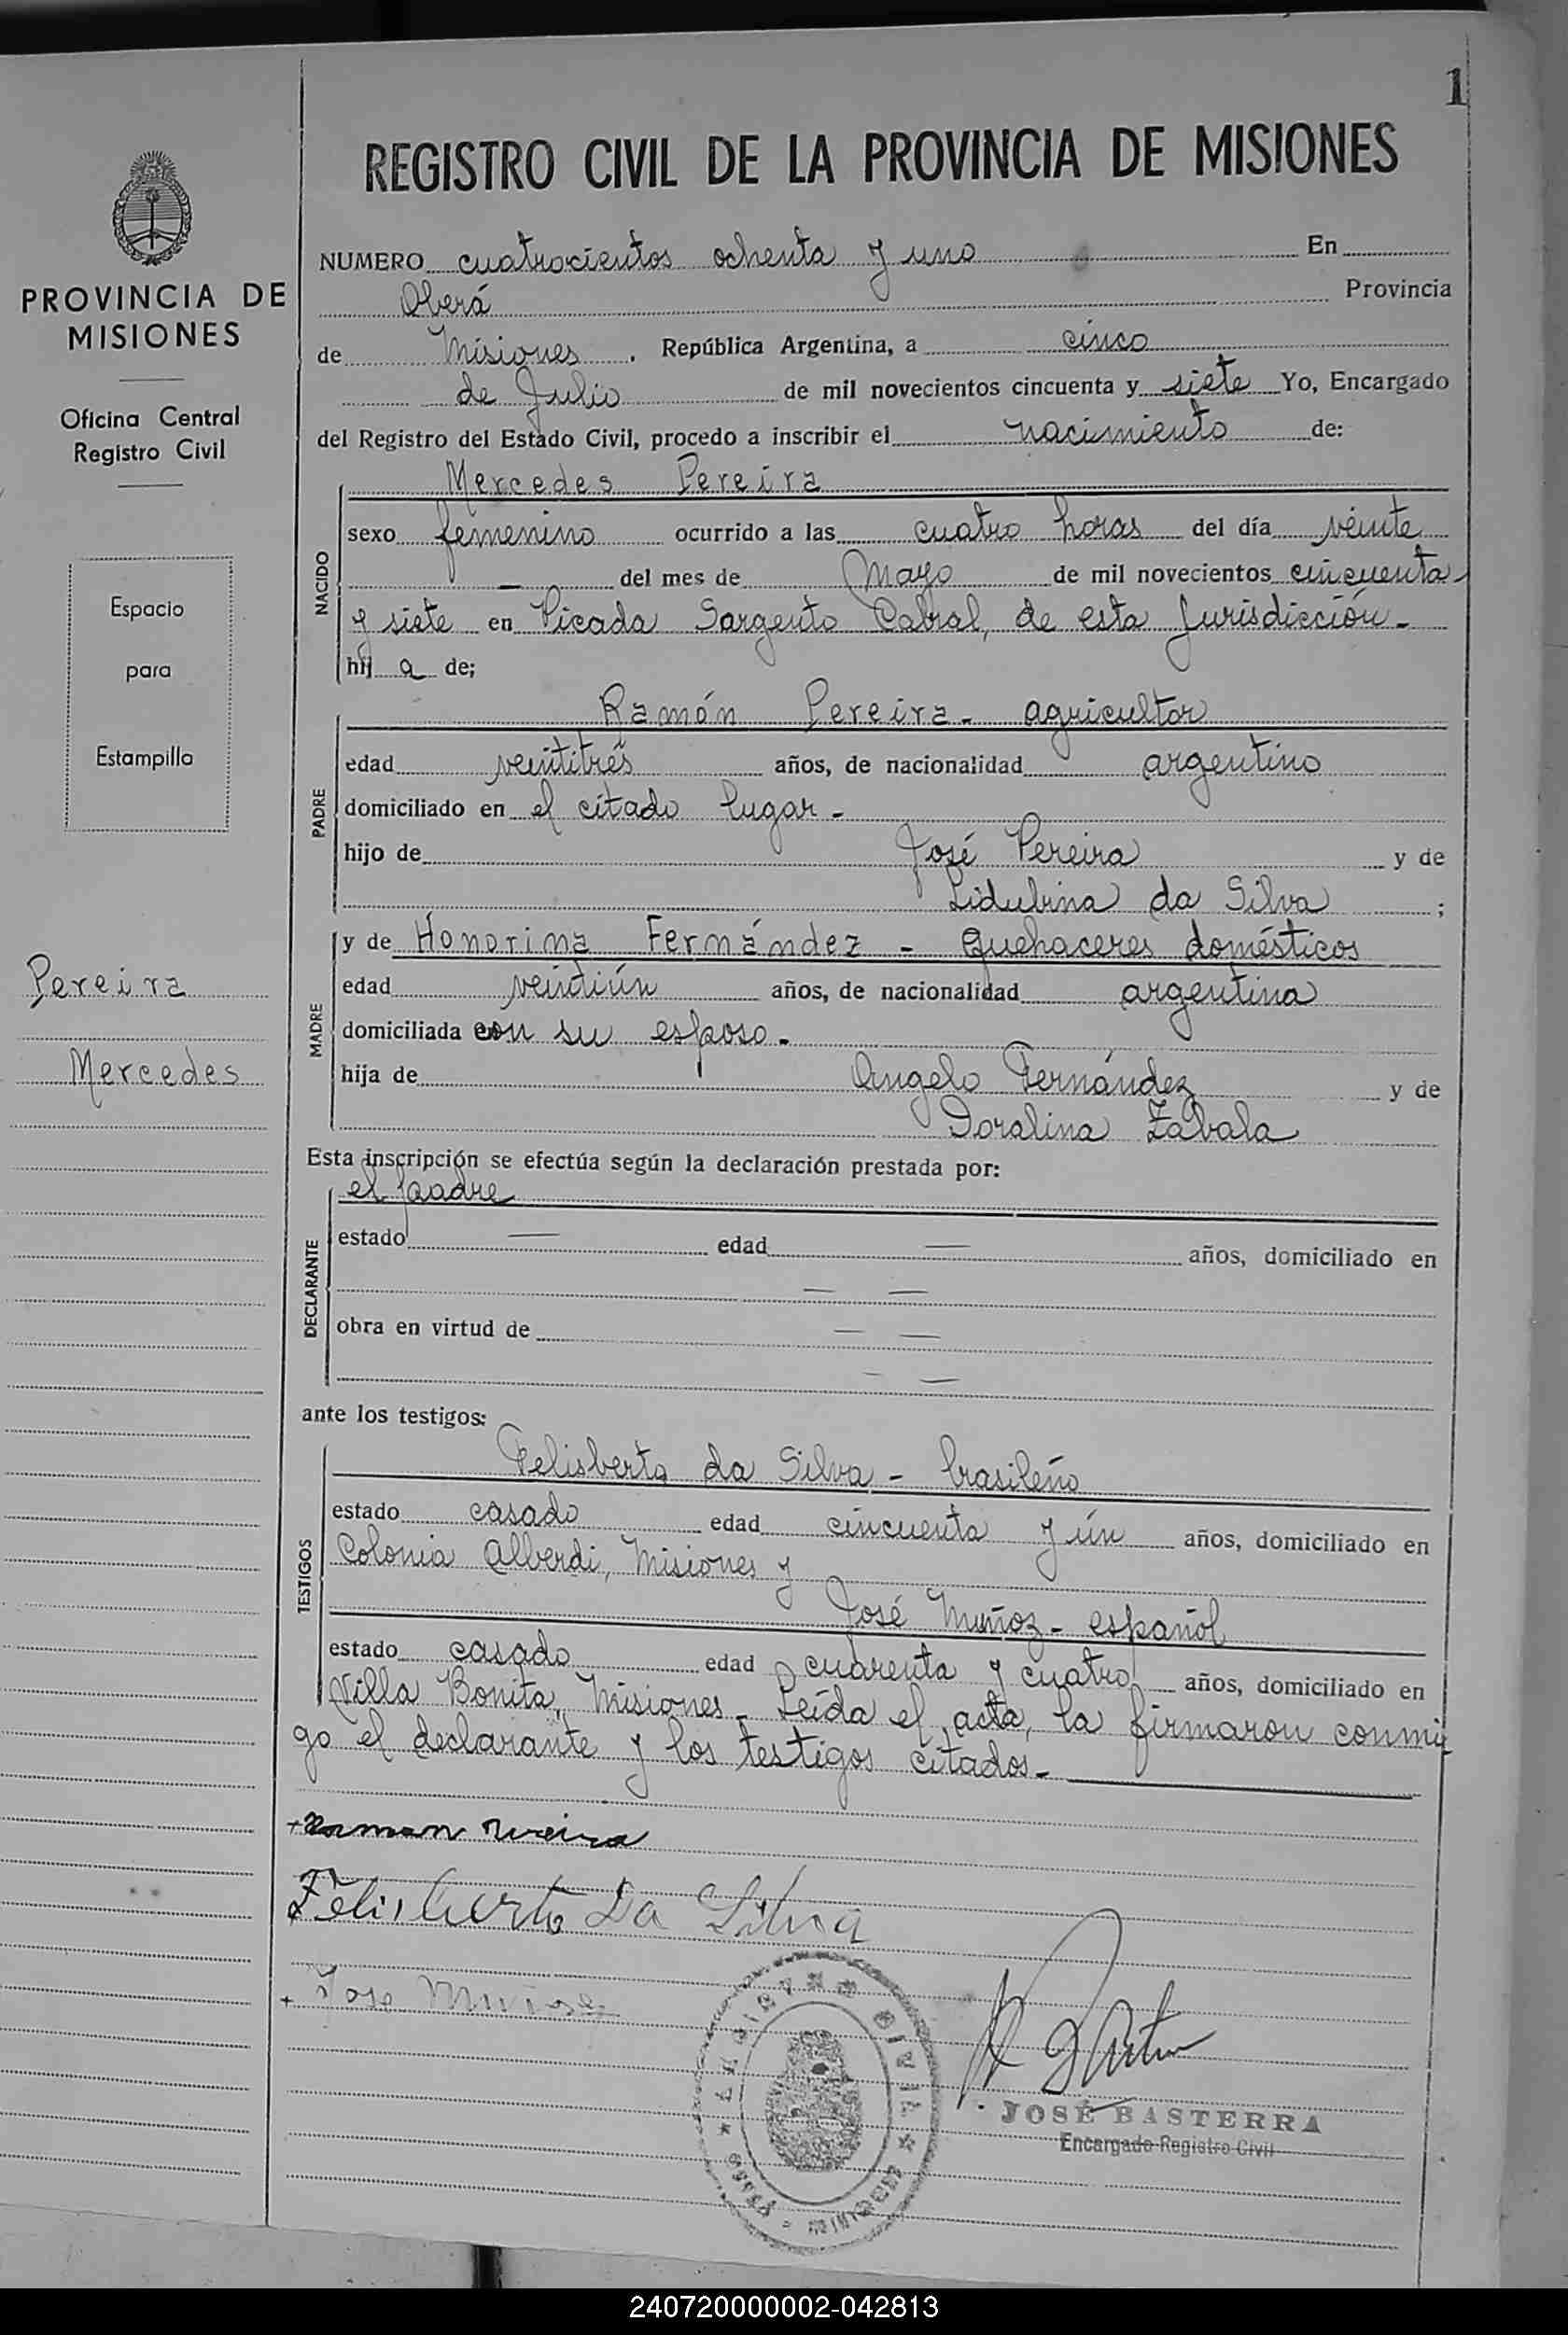 1
REGISTRO CIVIL DE LA PROVINCIA DE MISIONES
PROVINCIA DE
MISIONES
Oficina Central
Registro Civil
Espacio
para
Estampilla
Pereira
Mercedes
NUMERO cuatrocientos ochenta y uno En
Oberá Provincia
de Misiones. República Argentina, a cinco
de Julio de mil novecientos cincuenta y siete Yo, Encargado
del Registro del Estado Civil, procedo a inscribir el nacimiento de:
NACIDO
Mercedes Pereira
sexo femenino ocurrido a las cuatro horas del día veinte
— del mes de Mayo de mil novecientos cincuenta
y siete en Picada Sargento Cabral, de esta Jurisdicción-
hij a de;
PADRE
Ramón Pereira- agricultor
edad veintitrés años, de nacionalidad argentino
domiciliado en el citado lugar-
hijo de José Pereira y de
Lidubina da Silva ;
MADRE
y de Honorina Fernández - Quehaceres domésticos
edad veintiún años, de nacionalidad argentina
domiciliada con su esposo-
hija de Angelo Fernández y de
Doralina Zabala
Esta inscripción se efectúa según la declaración prestada por:
DECLARANTE
el padre
estado — edad — años, domiciliado en
— —
obra en virtud de — —
— —
ante los testigos:
TESTIGOS
Felisberto da Silva - brasileño
estado casado edad cincuenta y ún años, domiciliado en
Colonia Alberdi, Misiones y
José Muñoz- español
estado casado edad cuarenta y cuatro años, domiciliado en
Villa Bonita, Misiones- Leída el acta, la firmaron conmi
go el declarante y los testigos citados-
Ramon Pereira
Felisberto Da Silva
Jose
JOSÉ BASTERRA
Encargado Registro Civil
240720000002-042813